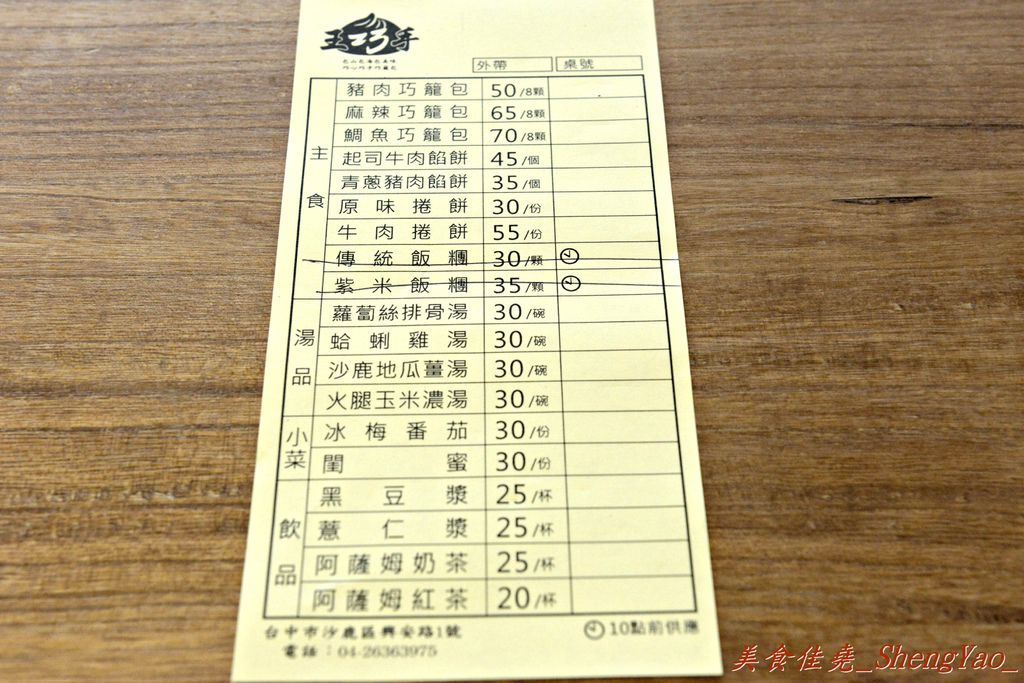 王巧手
外帶 桌號
主食
豬肉巧籠包 50/8顆
麻辣巧籠包 65/8顆
鯛魚巧籠包 70/8顆
起司牛肉餡餅 45/個
青蔥豬肉餡餅 35/個
原味捲餅 30/份
牛肉捲餅 55/份
傳統飯糰 30/顆
紫米飯糰 35/顆
湯品
蘿蔔絲排骨湯 30/碗
蛤蜊雞湯 30/碗
沙鹿地瓜薑湯 30/碗
火腿玉米濃湯 30/碗
小菜
冰梅番茄 30/份
閨蜜 30/份
飲品
黑豆漿 25/杯
薏仁漿 25/杯
阿薩姆奶茶 25/杯
阿薩姆紅茶 20/杯
台中市沙鹿區興安路1號
電話：04-26363975
10點前供應
美食佳堯_ShengYao_